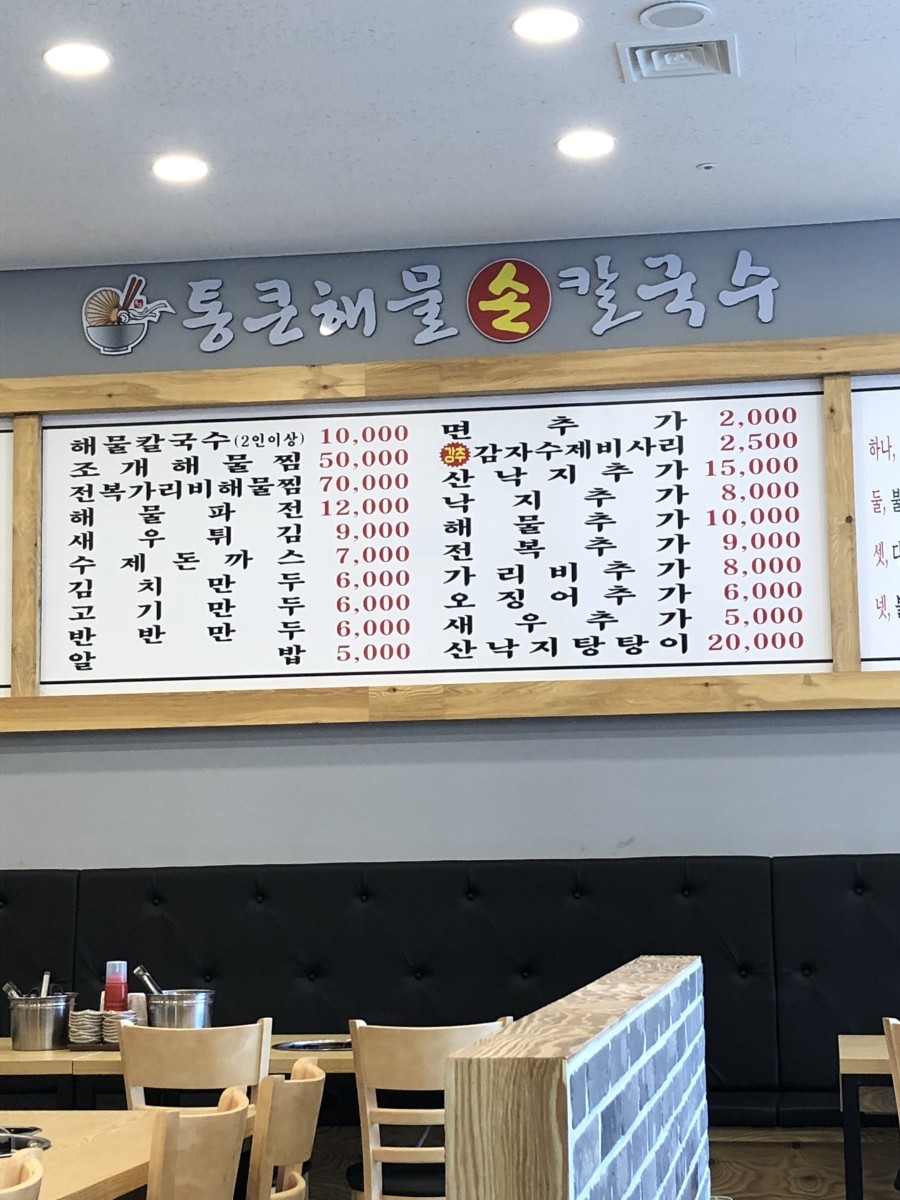 통큰해물손칼국수
해물칼국수(2인이상) 10,000
조개해물찜 50,000
전복가리비해물찜 70,000
해물파전 12,000
새우튀김 9,000
수제돈까스 7,000
김치만두 6,000
고기만두 6,000
반반만두 6,000
알밥 5,000
면추가 2,000
강추 감자수제비사리 2,500
산낙지추가 15,000
낙지추가 8,000
해물추가 10,000
전복추가 9,000
가리비추가 8,000
오징어추가 6,000
새우추가 5,000
산낙지탕탕이 20,000
하나,
둘,
셋,
넷,